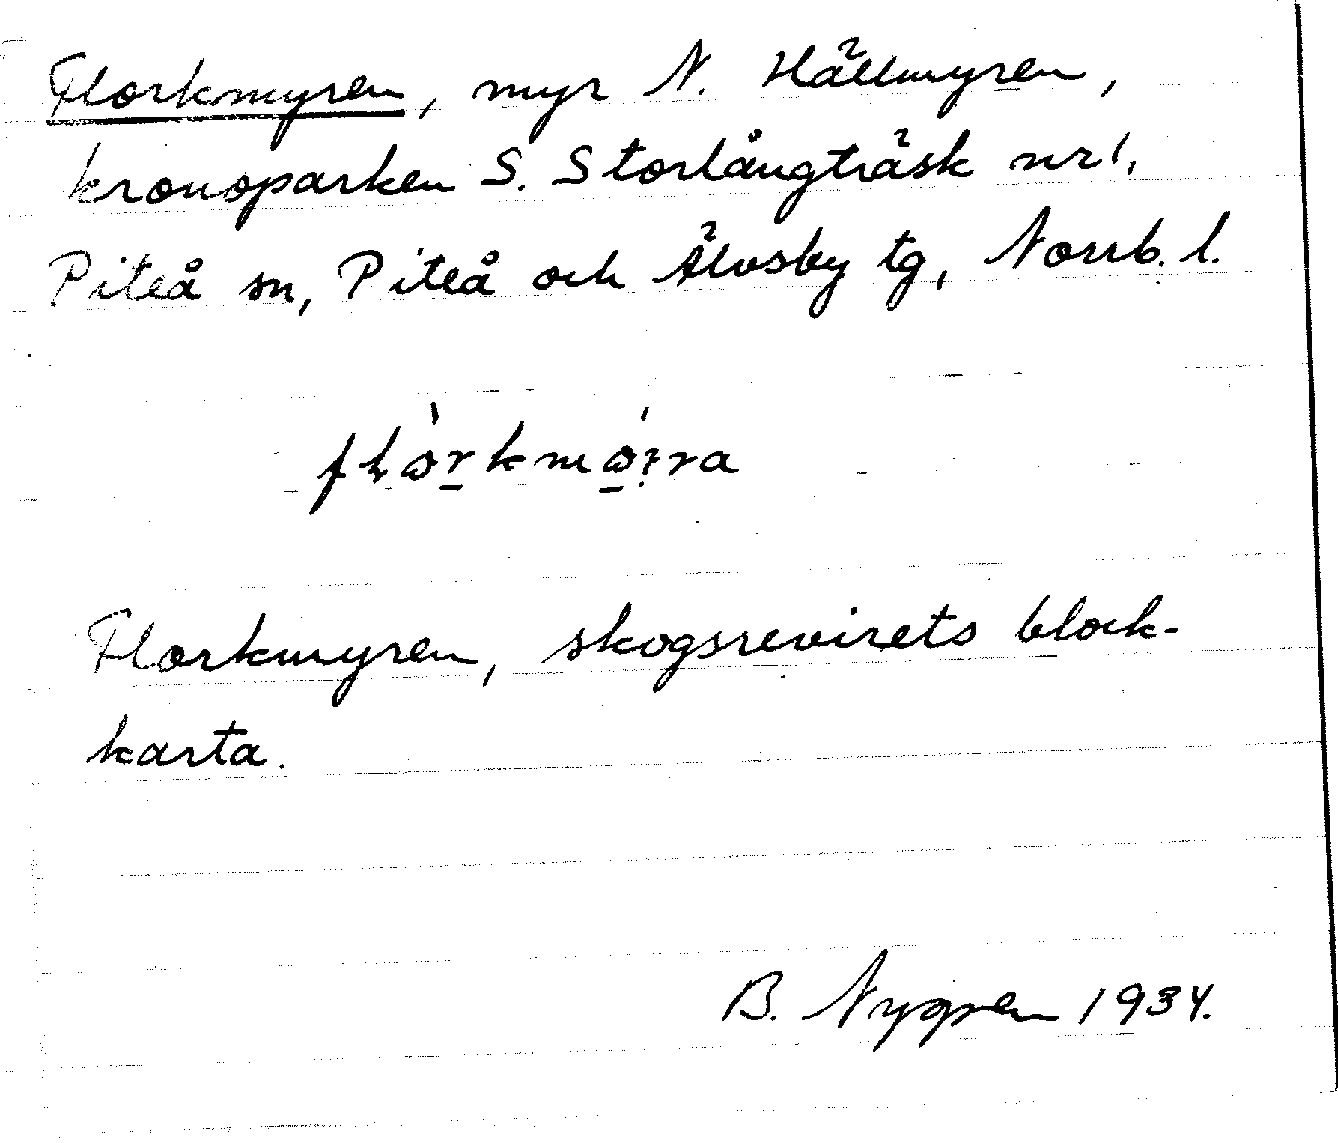 Florkmyren, myr N. Hällmyren,
kronoparken S. Storlångträsk nr 1,
Piteå sn, Piteå och Älvsby tg, Norrb. l.
Florkmyren, skogsrevirets block-
karta.
B. Nygren 1934.